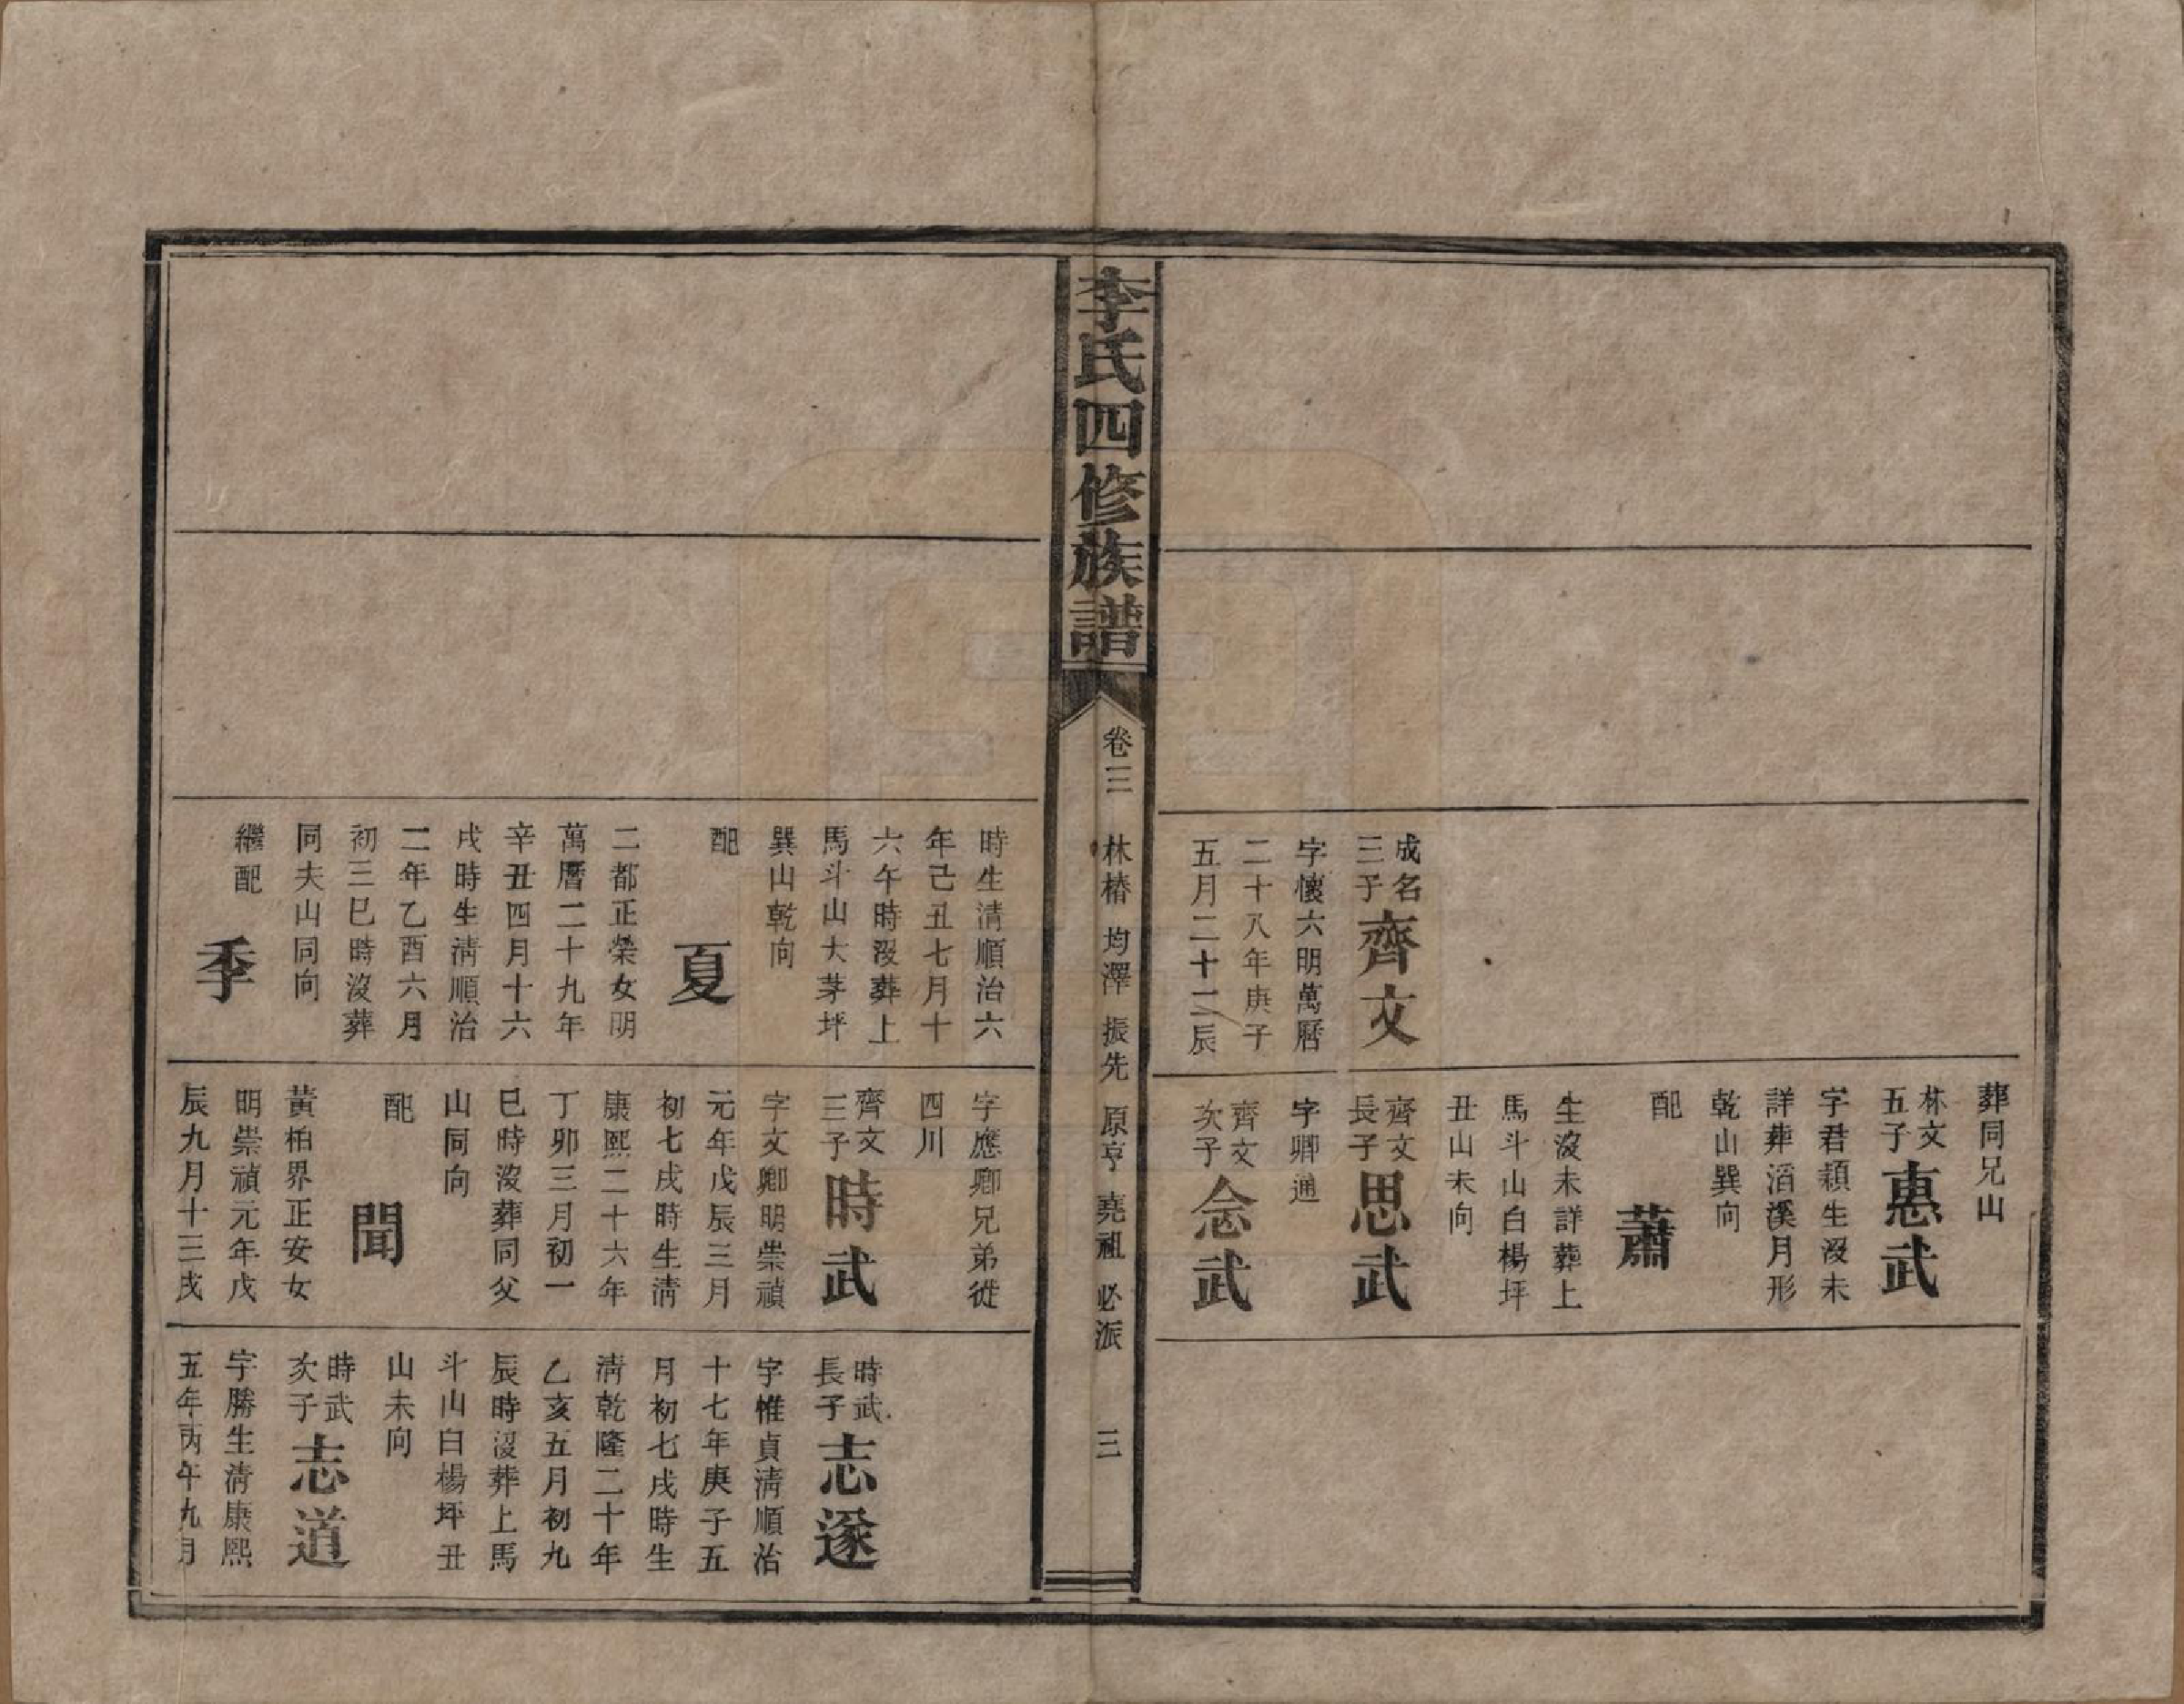 成名
三子
齊文
字懷六明萬曆
二十八年庚子
五月二十二辰
葬同兄山
林文
五子
惠武
字君穎生沒未
詳葬滔溪月形
乾山巽向
配
蕭
生沒未詳葬上
馬斗山白楊坪
丑山未向
齊文
長子
思武
字卿通
齊文
次子
念武
李氏四修族譜
卷三
林椿 均澤 振先 原亨 堯祖 必派
三
時生清順治六
年己丑七月十
六午時沒葬上
馬斗山大茅坪
巽山乾向
配
夏
二都正榮女明
萬曆二十九年
辛丑四月十六
戌時生清順治
二年乙酉六月
初三巳時沒葬
同夫山同向
繼配
季
字應卿兄弟從
四川
齊文
三子
時武
字文卿明崇禎
元年戊辰三月
初七戌時生清
康熙二十六年
丁卯三月初一
巳時沒葬同父
山同向
配
聞
黃柏界正安女
明崇禎元年戊
辰九月十三戌
時武
長子
志遂
字惟貞清順治
十七年庚子五
月初七戌時生
清乾隆二十年
乙亥五月初九
辰時沒葬上馬
斗山白楊坪丑
山未向
時武
次子
志道
字勝生清康熙
五年丙午九月